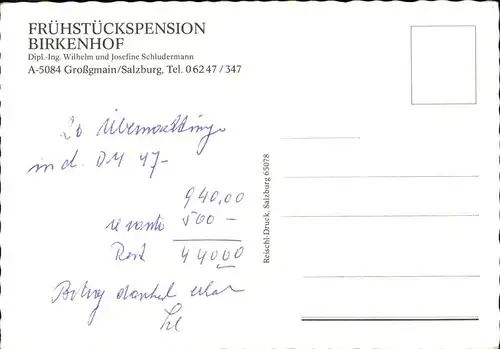 FRÜHSTÜCKSPENSION
BIRKENHOF
Dipl.-Ing. Wilhelm und Josefine Schludermann
A-5084 Großgmain/Salzburg, Tel. 06247/347
20 Übernachtung
in d. DM 47-
940,00
500 -
Rest 44000
Betrag dankend erhal
Reischl-Druck, Salzburg 65078